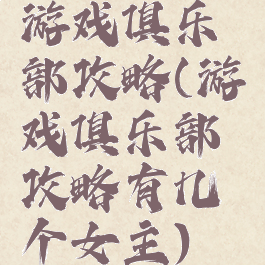 游戏俱乐
部攻略(游
戏俱乐部
攻略有几
个女主)